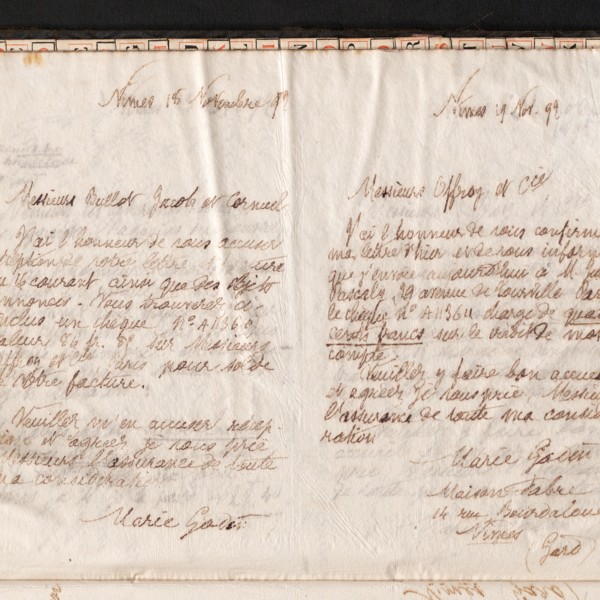 Nimes 18 Novembre 92
Messieurs Bullot Jacob et
J'ai l'honneur de vous accuser
de votre lettre
16 courant, ainsi que des objets
annoncés. Vous trouverez ci-
inclus un chèque N° A11360
valeur 86 fr. sur Messieurs
Offroy et Cie pour solde
de votre facture.
Veuillez m'en accuser récep-
et agréer je vous prie
Messieurs l'assurance de toute
ma considération
Marie Godin
Nimes 19 Nov. 92
Messieurs Offroy et Cie
J'ai l'honneur de vous confirm
ma lettre d'hier et de vous inform
que j'envoie aujourd'hui à M.
Pascaly, 39 avenue de Tourville
le chèque N° A11364 chargé de
cents francs sur le crédit de mon
compte.
Veuillez y faire bon accue
et agréer je vous prie, Messieu
l'assurance de toute ma considé
ration
Marie Godin
Maison Fabre
14 rue Bourdaloue
Nimes
(Gard)